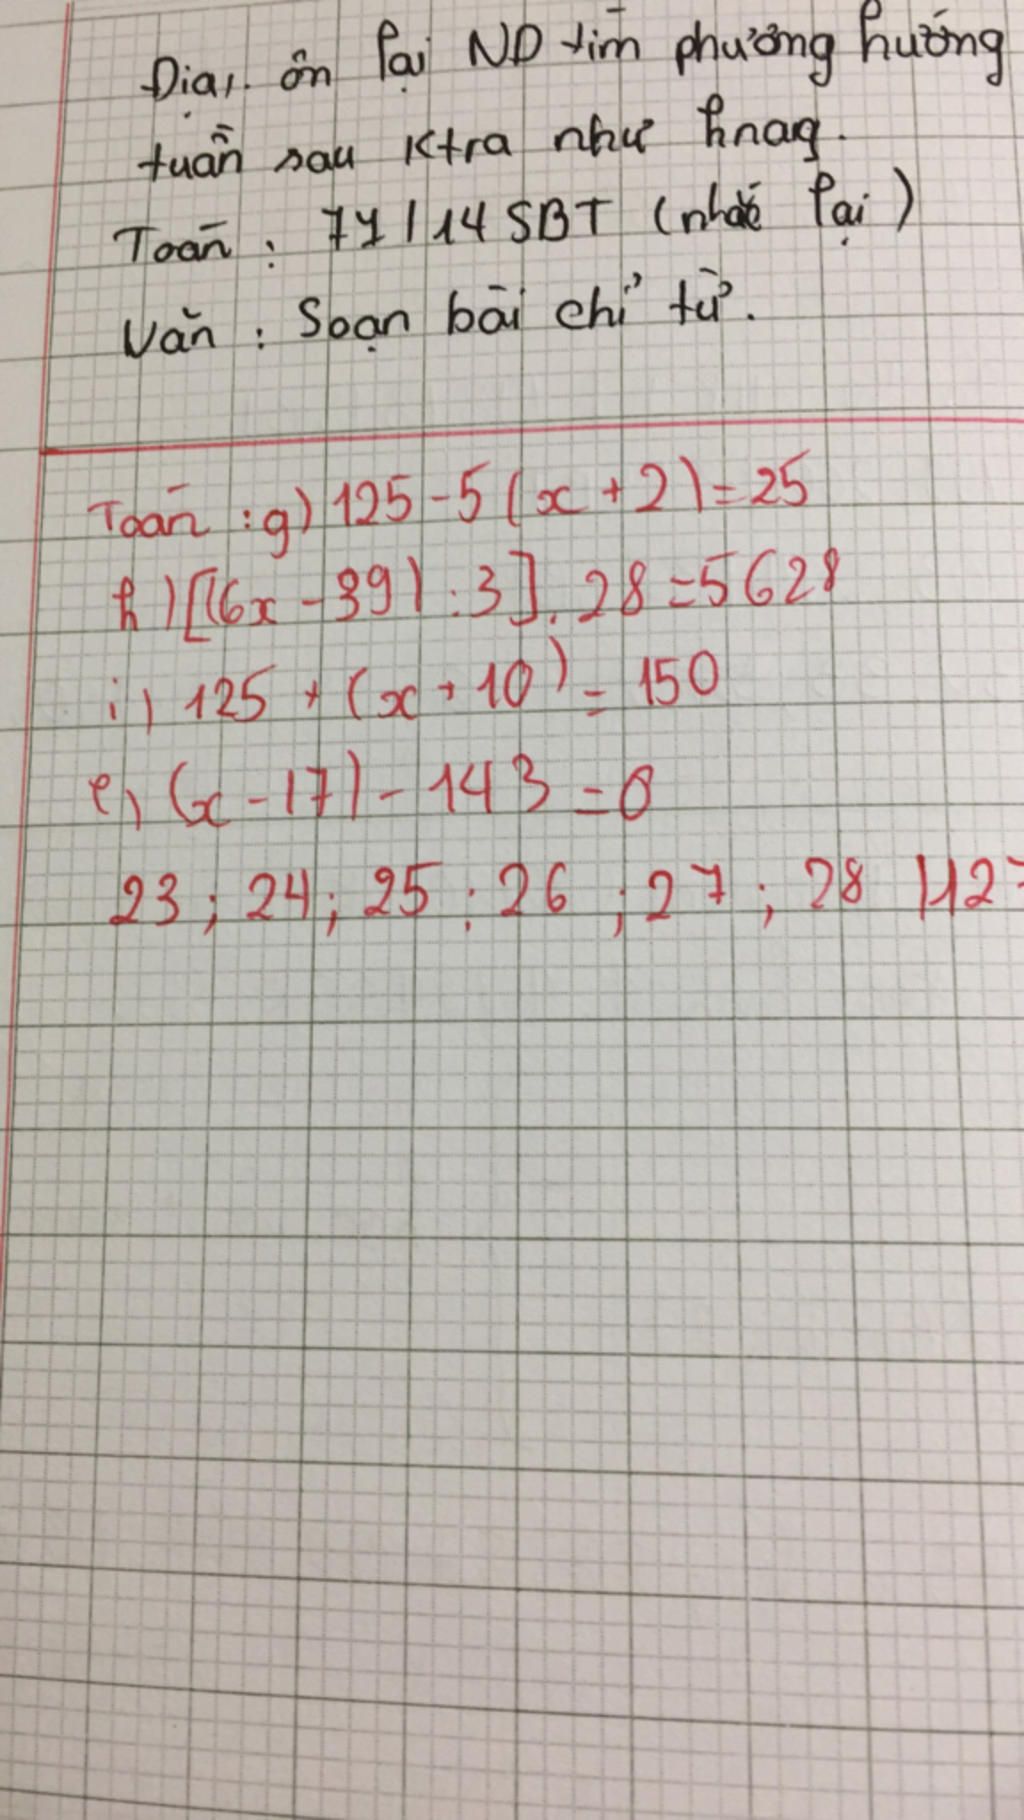 Địa: ôn lại ND tìm phương hướng
tuần sau Ktra như hnay.
Toán: 71/14 SBT (nhắc lại)
Văn: Soạn bài chỉ từ.
Toán: g) 125 - 5 (x + 2) = 25
h) [(6x - 39) : 3] . 28 = 5628
i) 125 + (x + 10) = 150
e) (x - 17) - 143 = 0
23; 24; 25; 26; 27; 28